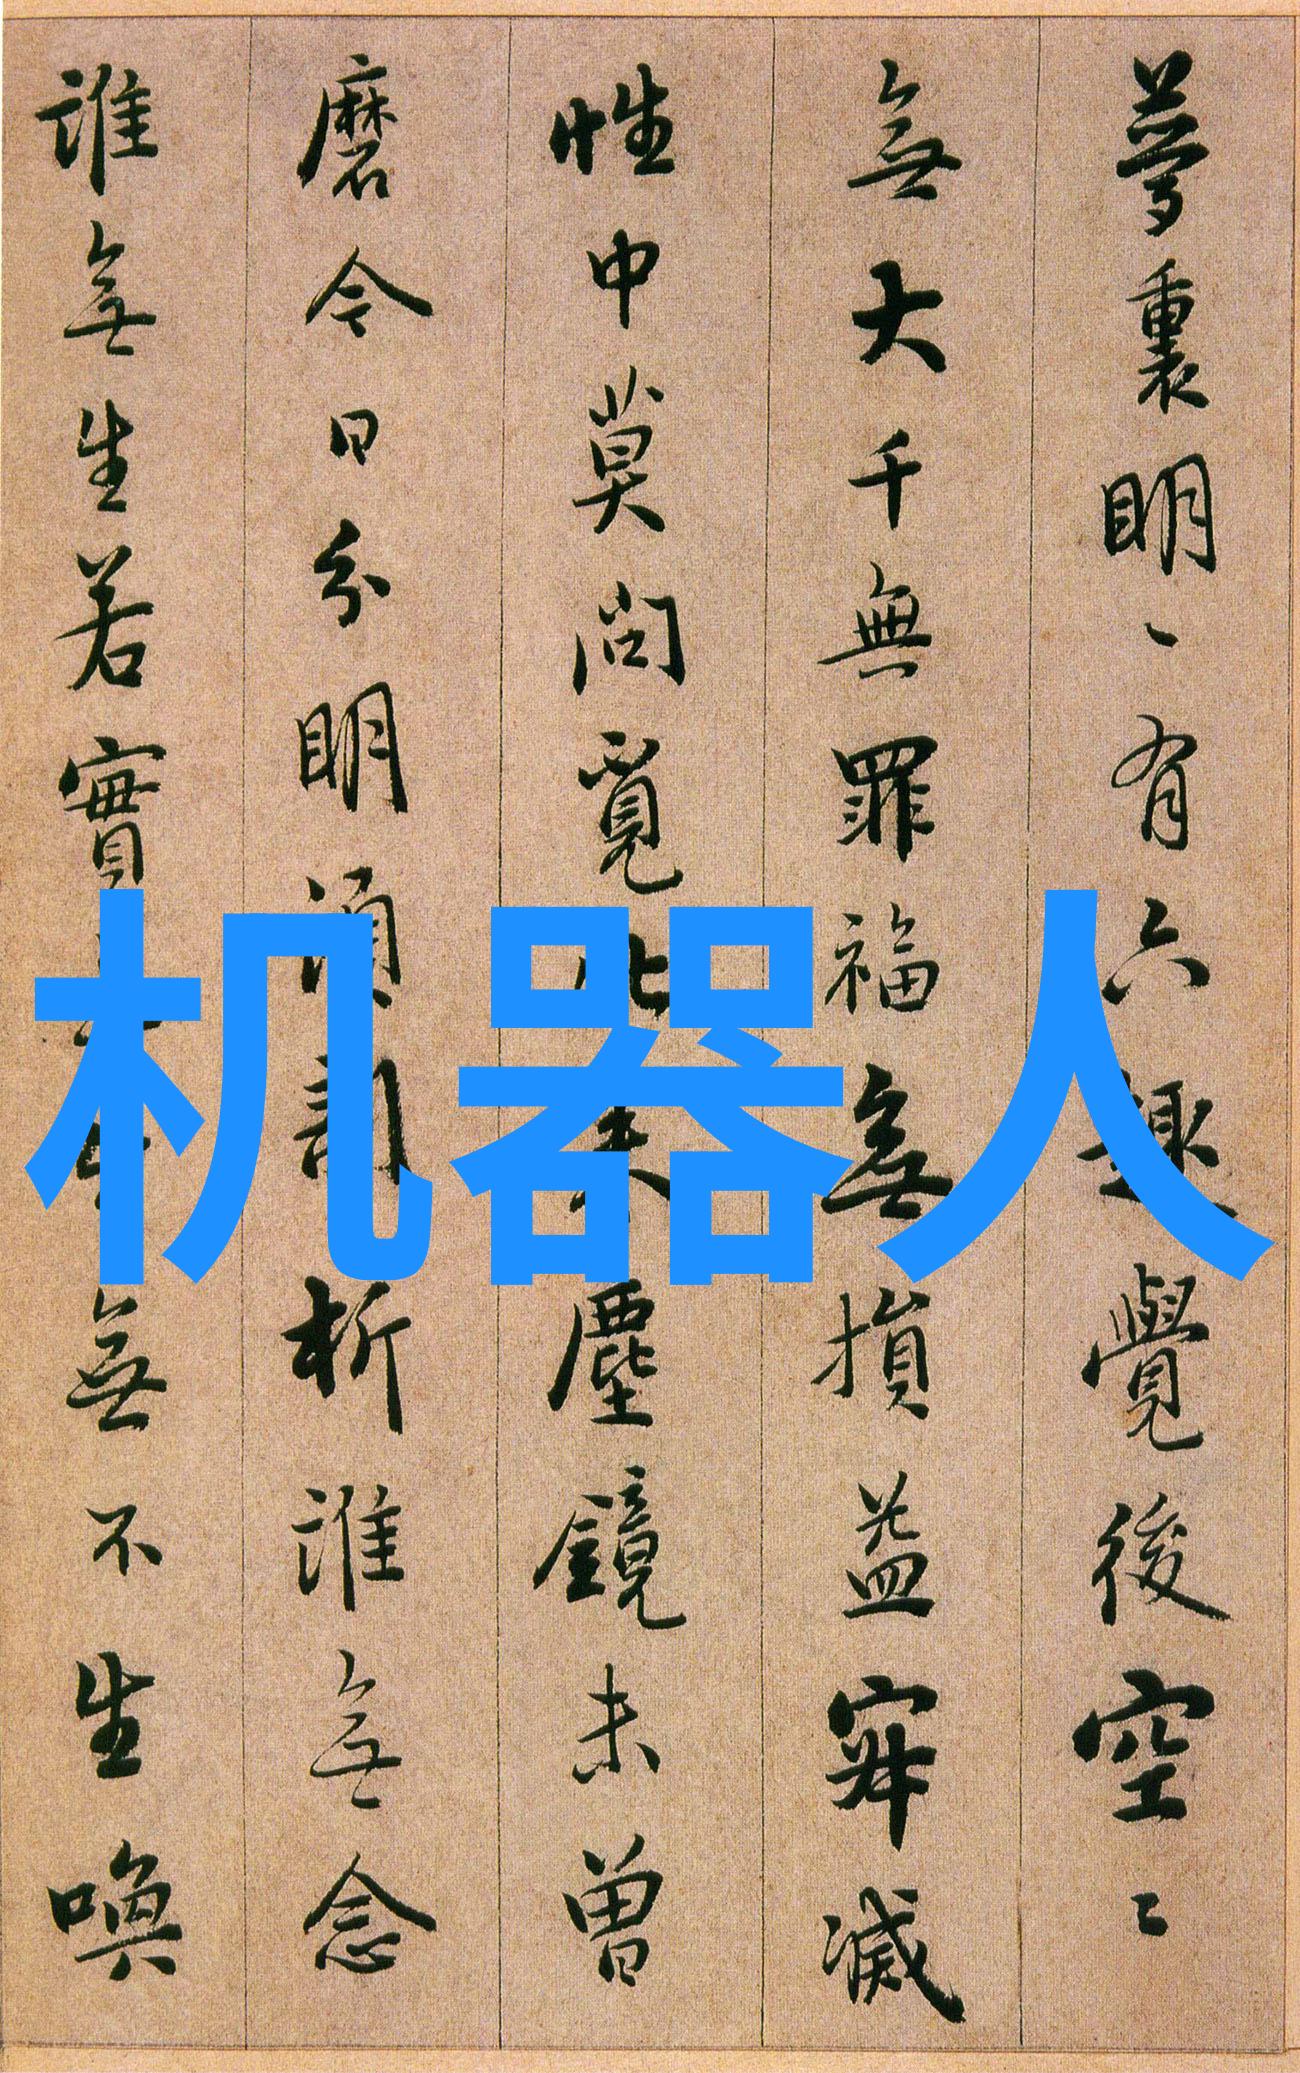 夢裏明丶有六趣覺後空〻
無大千無罪福無損益寂滅
性中莫問覓比來塵鏡未曾
磨今日分明須剖析誰無念
誰無生若實無生無不生喚
机器人